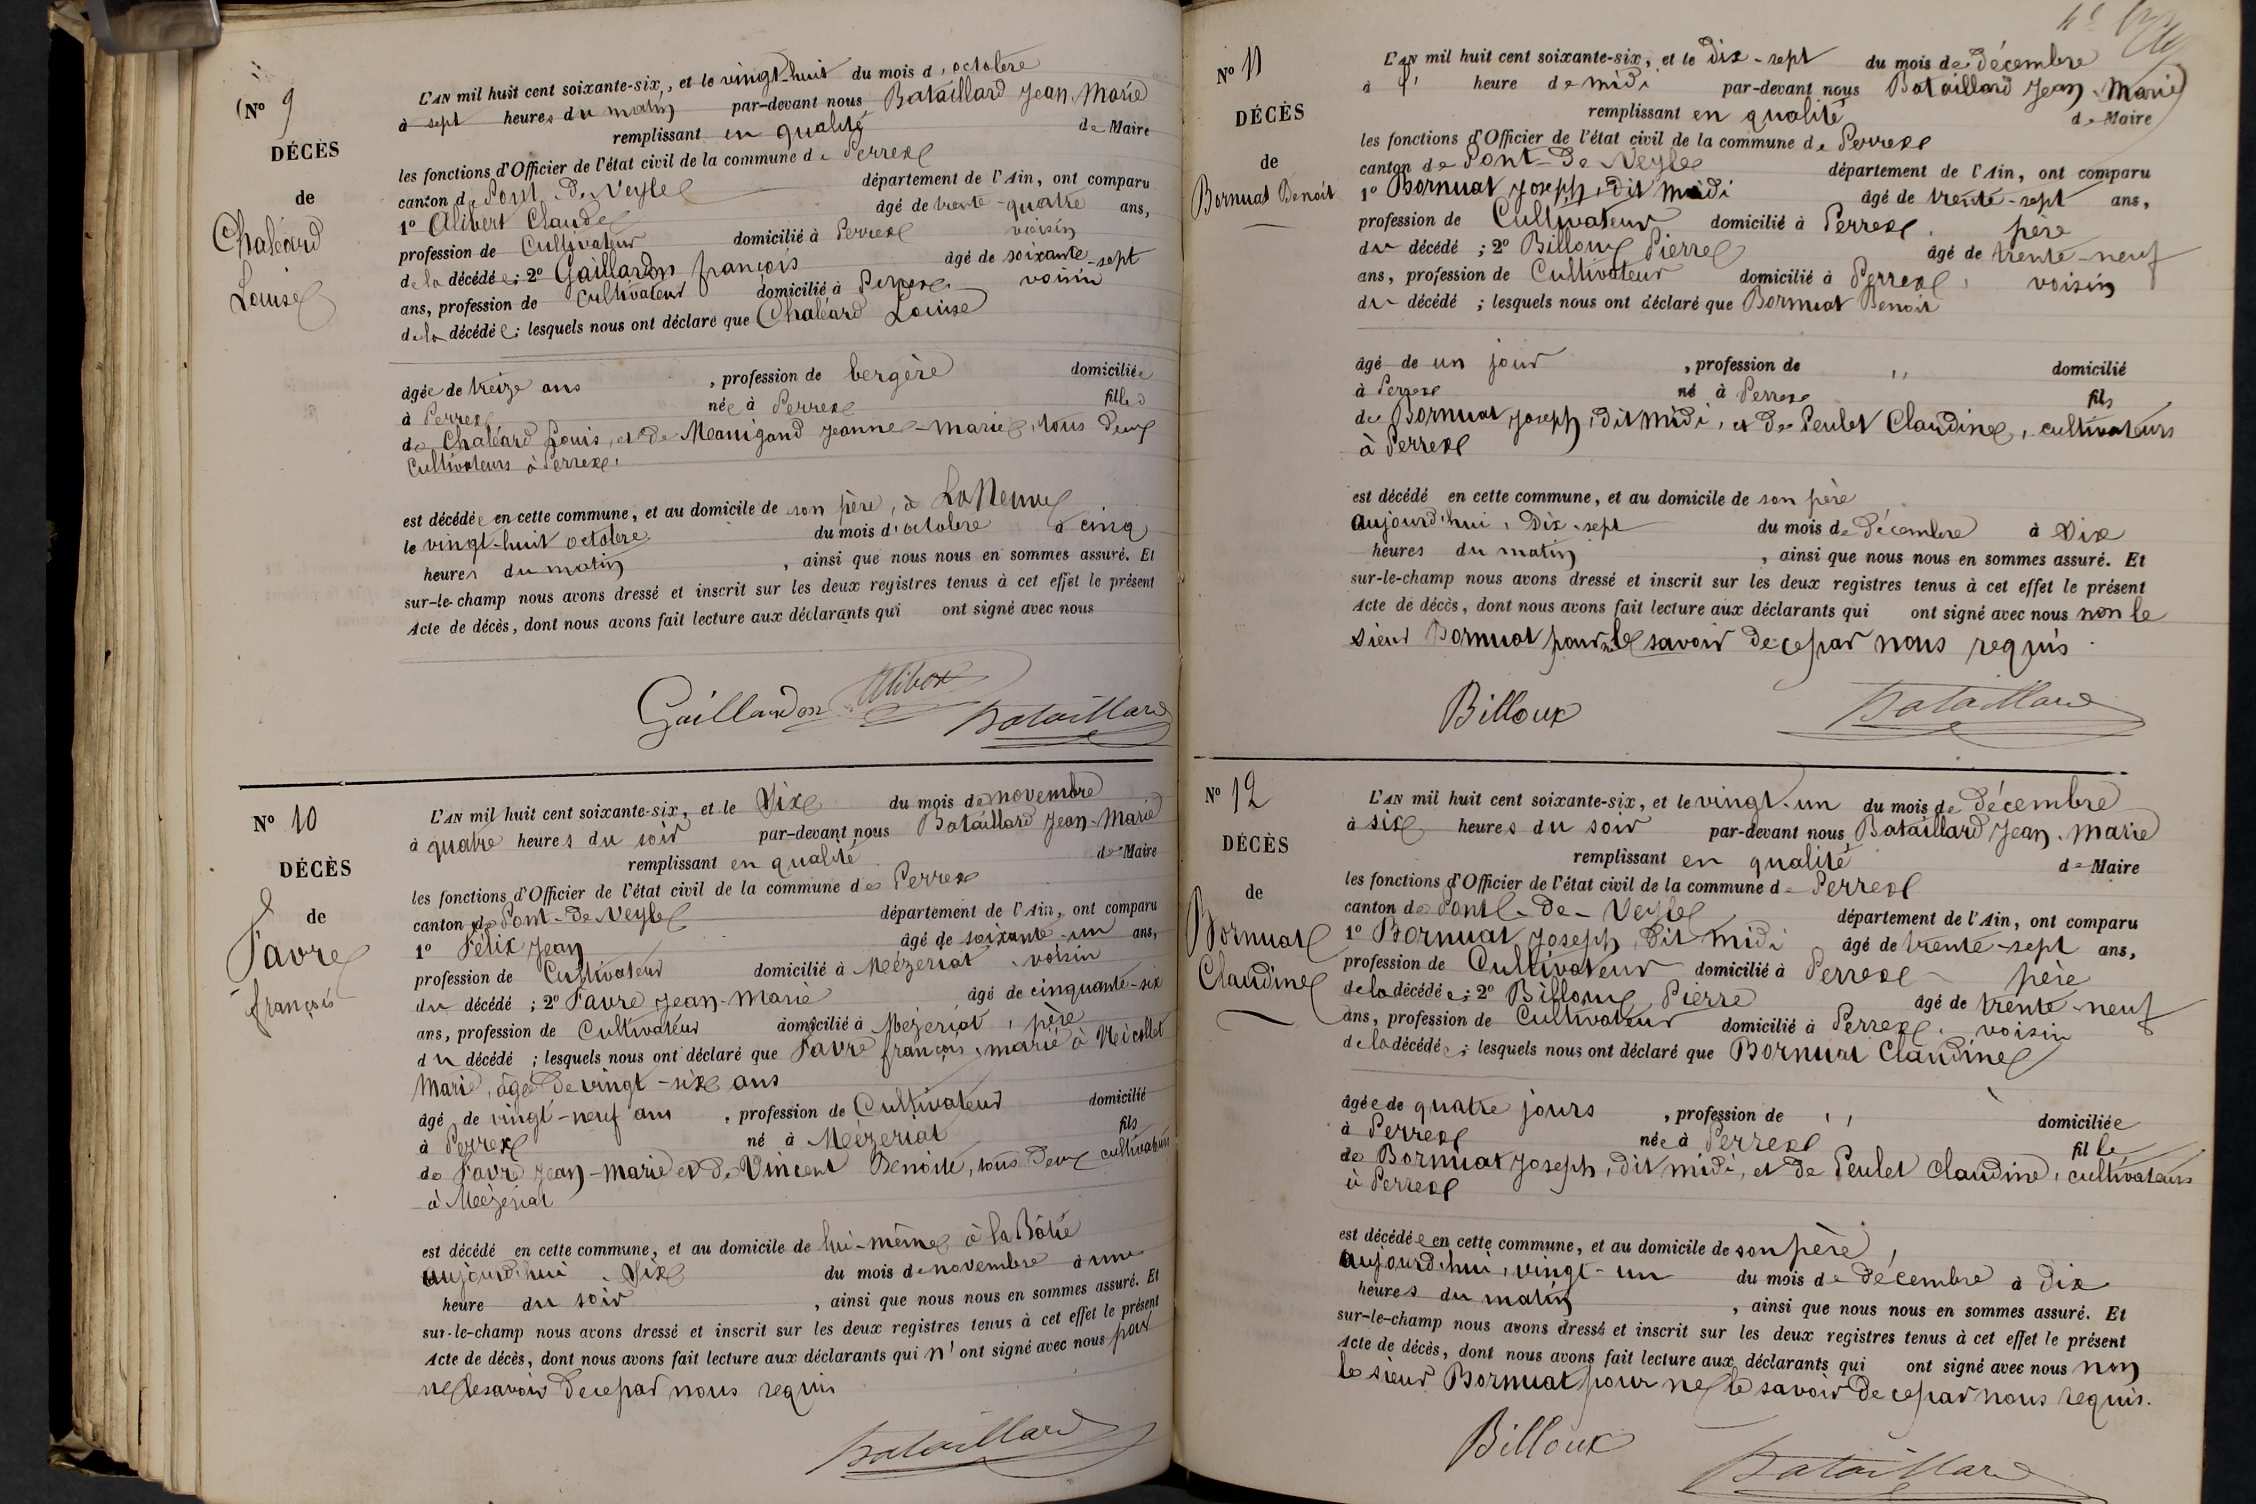 (No 9
DÉCÈS
de
Chaléard
Louise
L'AN mil huit cent soixante-six, et le vingt-huit du mois d'octobre
à sept heures du matin par-devant nous Bataillard Jean-Marie
remplissant en qualité de Maire
les fonctions d'Officier de l'état civil de la commune de Perrex
canton de Pont-de-Veyle département de l'Ain, ont comparu
1o Alibert Claude âgé de trente-quatre ans,
profession de Cultivateur domicilié à Perrex voisin
de la décédée; 2o Gaillardon françois âgé de soixante-sept
ans, profession de Cultivateur domicilié à Perrex, voisin
de la décédée; lesquels nous ont déclaré que Chaléard Louise
âgée de treize ans , profession de bergère domiciliée
à Perrex née à Perrex fille
de Chaléard Louis, et de Jeanne-Marie, tous deux
Cultivateurs à Perrex.
est décédée en cette commune, et au domicile de son père, à
le vingt-huit octobre du mois d'octobre à cinq
heures du matin , ainsi que nous nous en sommes assuré. Et
sur-le-champ nous avons dressé et inscrit sur les deux registres tenus à cet effet le présent
Acte de décès, dont nous avons fait lecture aux déclarants qui ont signé avec nous
Gaillardon Bataillard
No 10
DÉCÈS
de
Favre
françois
L'AN mil huit cent soixante-six, et le Dix du mois de novembre
à quatre heures du soir par-devant nous Bataillard Jean-Marie
remplissant en qualité de Maire
les fonctions d'Officier de l'état civil de la commune de Perrex
canton de Pont-de-Veyle département de l'Ain, ont comparu
1o Félix Jean âgé de soixante-un ans,
profession de Cultivateur domicilié à Mézeriat, voisin
du décédé; 2o Favre Jean-Marie âgé de cinquante-six
ans, profession de Cultivateur domicilié à Mézeriat, père
du décédé; lesquels nous ont déclaré que Favre françois, marié à Nicollet
Marie, âgée de vingt-six ans
âgé de vingt-neuf ans , profession de Cultivateur domicilié
à Perrex né à Mézeriat fils
de Favre Jean-Marie et de Vincent Benoite, tous deux cultivateurs
à Mézeriat
est décédé en cette commune, et au domicile de lui-même à la Bâtie
aujourd'hui, Dix du mois de novembre à une
heure du soir , ainsi que nous nous en sommes assuré. Et
sur-le-champ nous avons dressé et inscrit sur les deux registres tenus à cet effet le présent
Acte de décès, dont nous avons fait lecture aux déclarants qui n'ont signé avec nous pour
ne le savoir de ce par nous requis
Bataillard
No 11
DÉCÈS
de
Bornuat Benoit
L'AN mil huit cent soixante-six, et le dix-sept du mois de décembre
à heure de midi par-devant nous Bataillard Jean-Marie
remplissant en qualité de Maire
les fonctions d'Officier de l'état civil de la commune de Perrex
canton de Pont-de-Veyle département de l'Ain, ont comparu
1o Bornuat Joseph, dit midi âgé de trente-sept ans,
profession de Cultivateur domicilié à Perrex, père
du décédé; 2o Billoux Pierre âgé de trente-neuf
ans, profession de Cultivateur domicilié à Perrex, voisin
du décédé; lesquels nous ont déclaré que Bornuat Benoit
âgé de un jour , profession de " domicilié
à Perrex né à Perrex fils
de Bornuat Joseph, dit midi, et de Peulet Claudine, cultivateurs
à Perrex
est décédé en cette commune, et au domicile de son père
aujourd'hui, Dix-sept du mois de Décembre à Dix
heures du matin , ainsi que nous nous en sommes assuré. Et
sur-le-champ nous avons dressé et inscrit sur les deux registres tenus à cet effet le présent
Acte de décès, dont nous avons fait lecture aux déclarants qui ont signé avec nous non le
sieur Bornuat pour ne le savoir de ce par nous requis
Billoux Bataillard
No 12
DÉCÈS
de
Bornuat
Claudine
L'AN mil huit cent soixante-six, et le vingt-un du mois de Décembre
à six heures du soir par-devant nous Bataillard Jean-Marie
remplissant en qualité de Maire
les fonctions d'Officier de l'état civil de la commune de Perrex
canton de Pont-de-Veyle département de l'Ain, ont comparu
1o Bornuat Joseph, dit midi âgé de trente-sept ans,
profession de Cultivateur domicilié à Perrex père
de la décédée; 2o Billoux Pierre âgé de trente-neuf
ans, profession de Cultivateur domicilié à Perrex, voisin
de la décédée; lesquels nous ont déclaré que Bornuat Claudine
âgée de quatre jours , profession de " domiciliée
à Perrex née à Perrex fille
de Bornuat Joseph, dit midi, et de Peulet Claudine, cultivateurs
à Perrex
est décédée en cette commune, et au domicile de son père,
aujourd'hui, vingt-un du mois de décembre à dix
heures du matin , ainsi que nous nous en sommes assuré. Et
sur-le-champ nous avons dressé et inscrit sur les deux registres tenus à cet effet le présent
Acte de décès, dont nous avons fait lecture aux déclarants qui ont signé avec nous non
le sieur Bornuat pour ne le savoir de ce par nous requis.
Billoux Bataillard